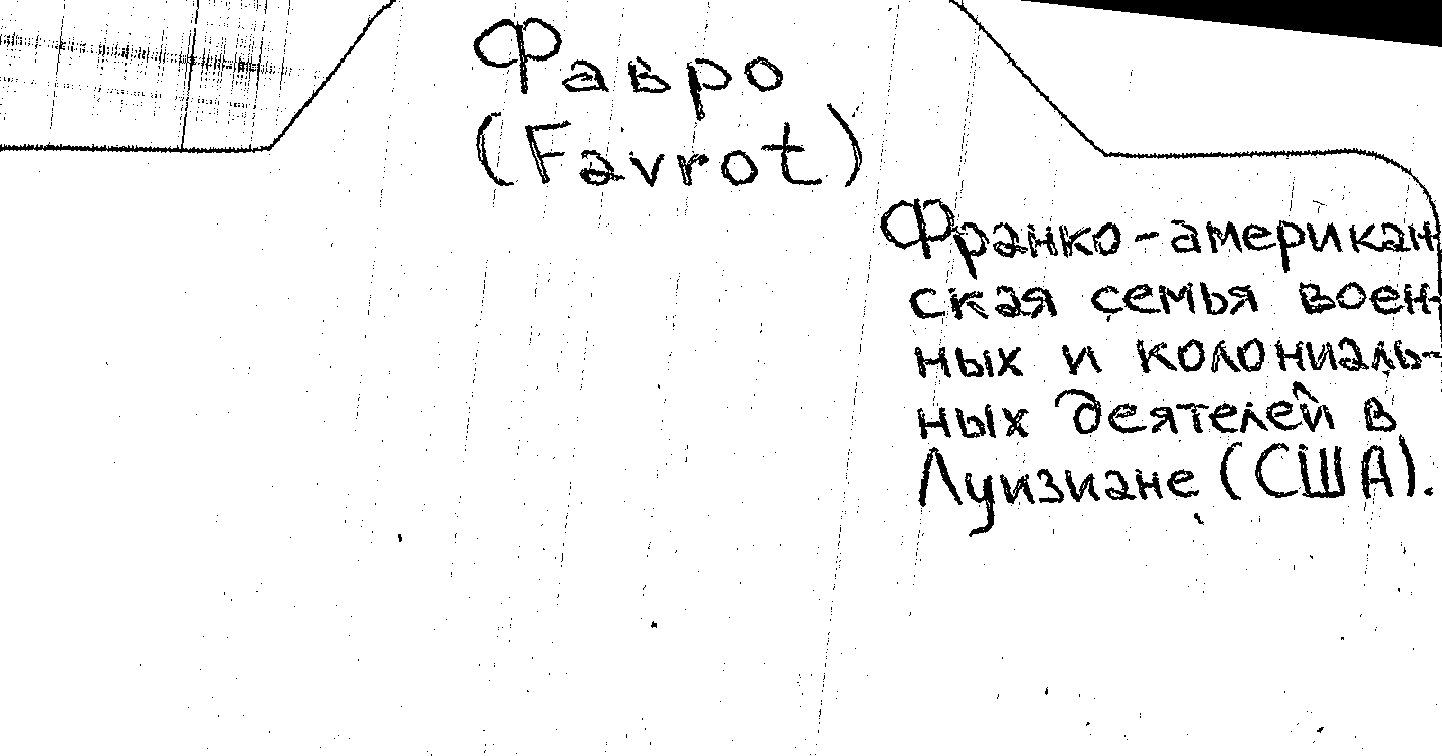 Фавро
(Favrot)
Франко-американ
ская семья воен-
ных и колониаль-
ных деятелей в
Луизиане (США).